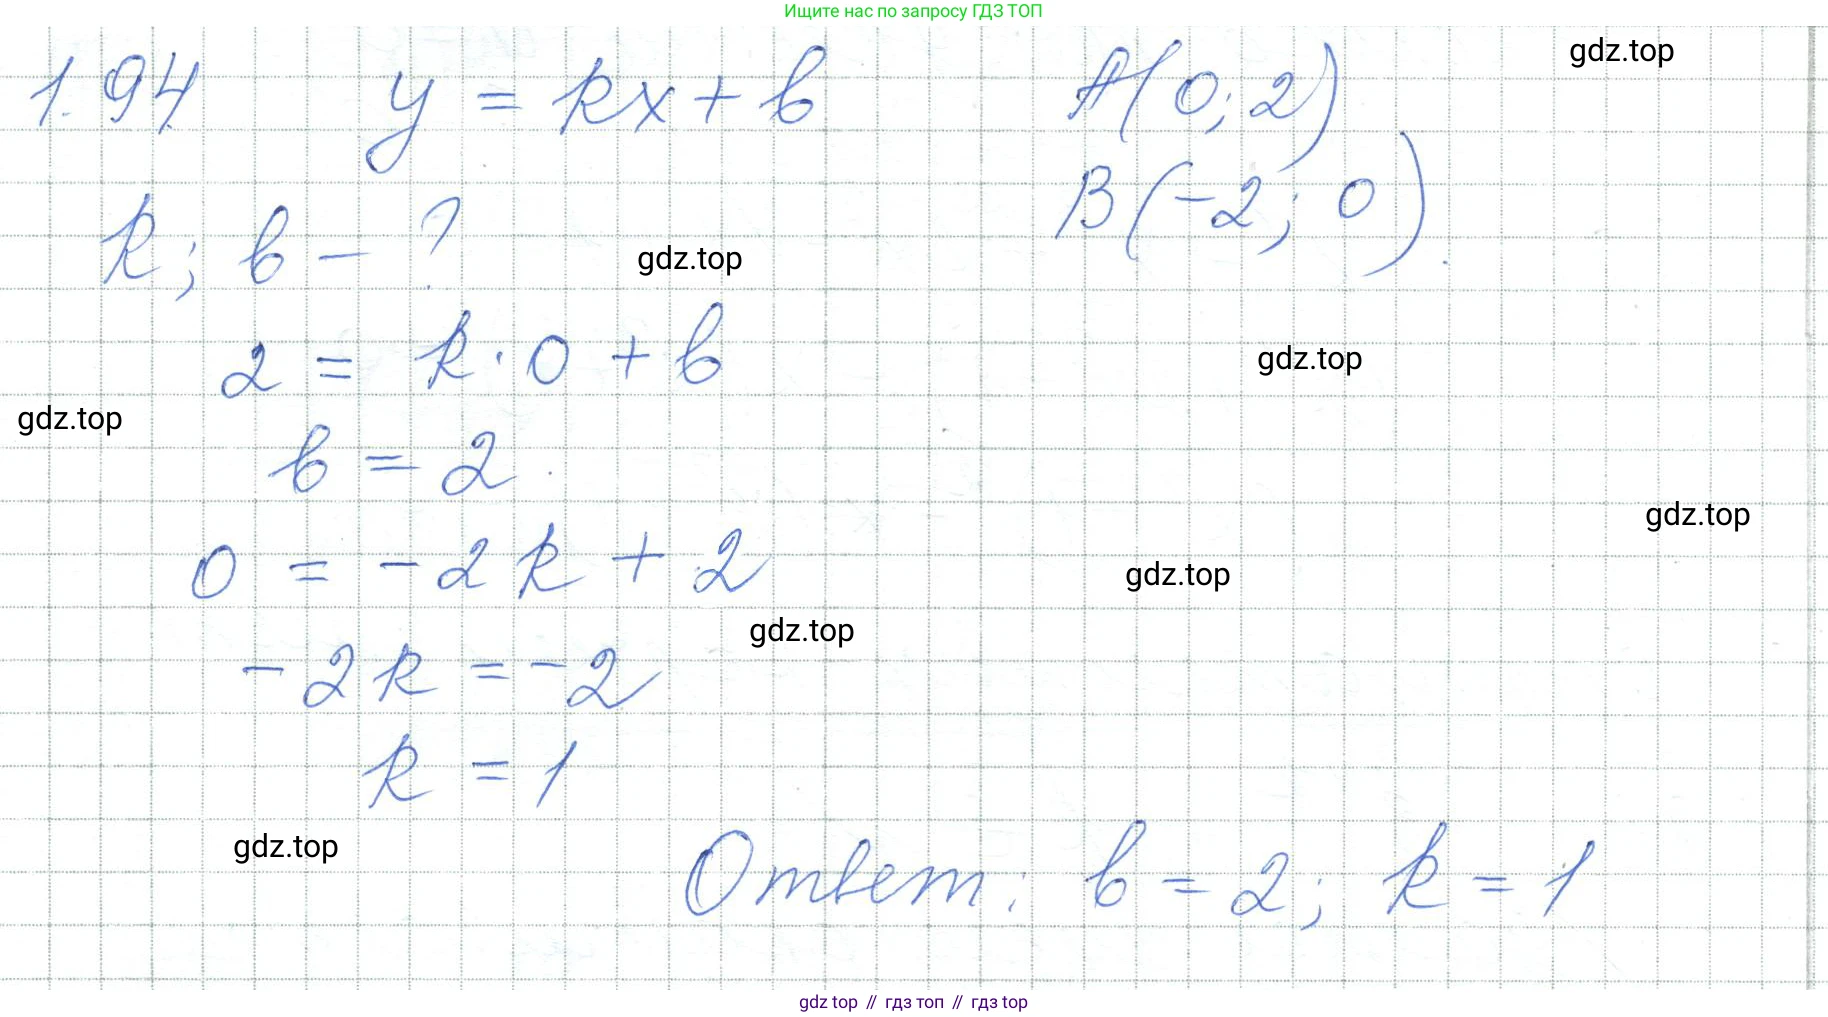 Ищите нас по запросу ГДЗ ТОП
1.94 y = kx + b A(0; 2)
gdz.top
B(-2; 0).
k; b - ?
gdz.top
2 = k · 0 + b
gdz.top
gdz.top
b = 2
gdz.top
0 = -2k + 2
gdz.top
gdz.top
-2k = -2
k = 1
gdz.top
Ответ: b = 2; k = 1
gdz top // гдз топ // гдз top